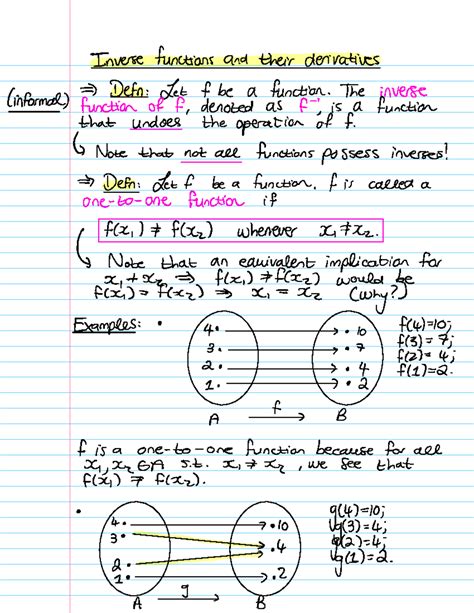 Inverse functions and their derivatives
(informal) ⇒ Defn: Let f be a function. The inverse
function of f, denoted as f⁻¹, is a function
that undoes the operation of f.
↳ Note that not all functions possess inverses!
⇒ Defn: Let f be a function. f is called a
one-to-one function if
f(x₁) ≠ f(x₂) whenever x₁ ≠ x₂.
↳ Note that an equivalent implication for
x₁ ≠ x₂ ⇒ f(x₁) ≠ f(x₂) would be
f(x₁) = f(x₂) ⇒ x₁ = x₂ (Why?)
Examples: •
4 • → • 10 f(4)=10;
3 • → • 7 f(3) = 7;
2 • → • 4 f(2) = 4;
1 • → • 2 f(1)=2.
A f → B
f is a one-to-one function because for all
x₁, x₂ ∈ A s.t. x₁ ≠ x₂, we see that
f(x₁) ≠ f(x₂).
•
4 • → • 10 g(4)=10;
3 • • 4 g(3)=4;
2 • g(2)=4;
1 • → • 2 g(1)=2.
A g → B